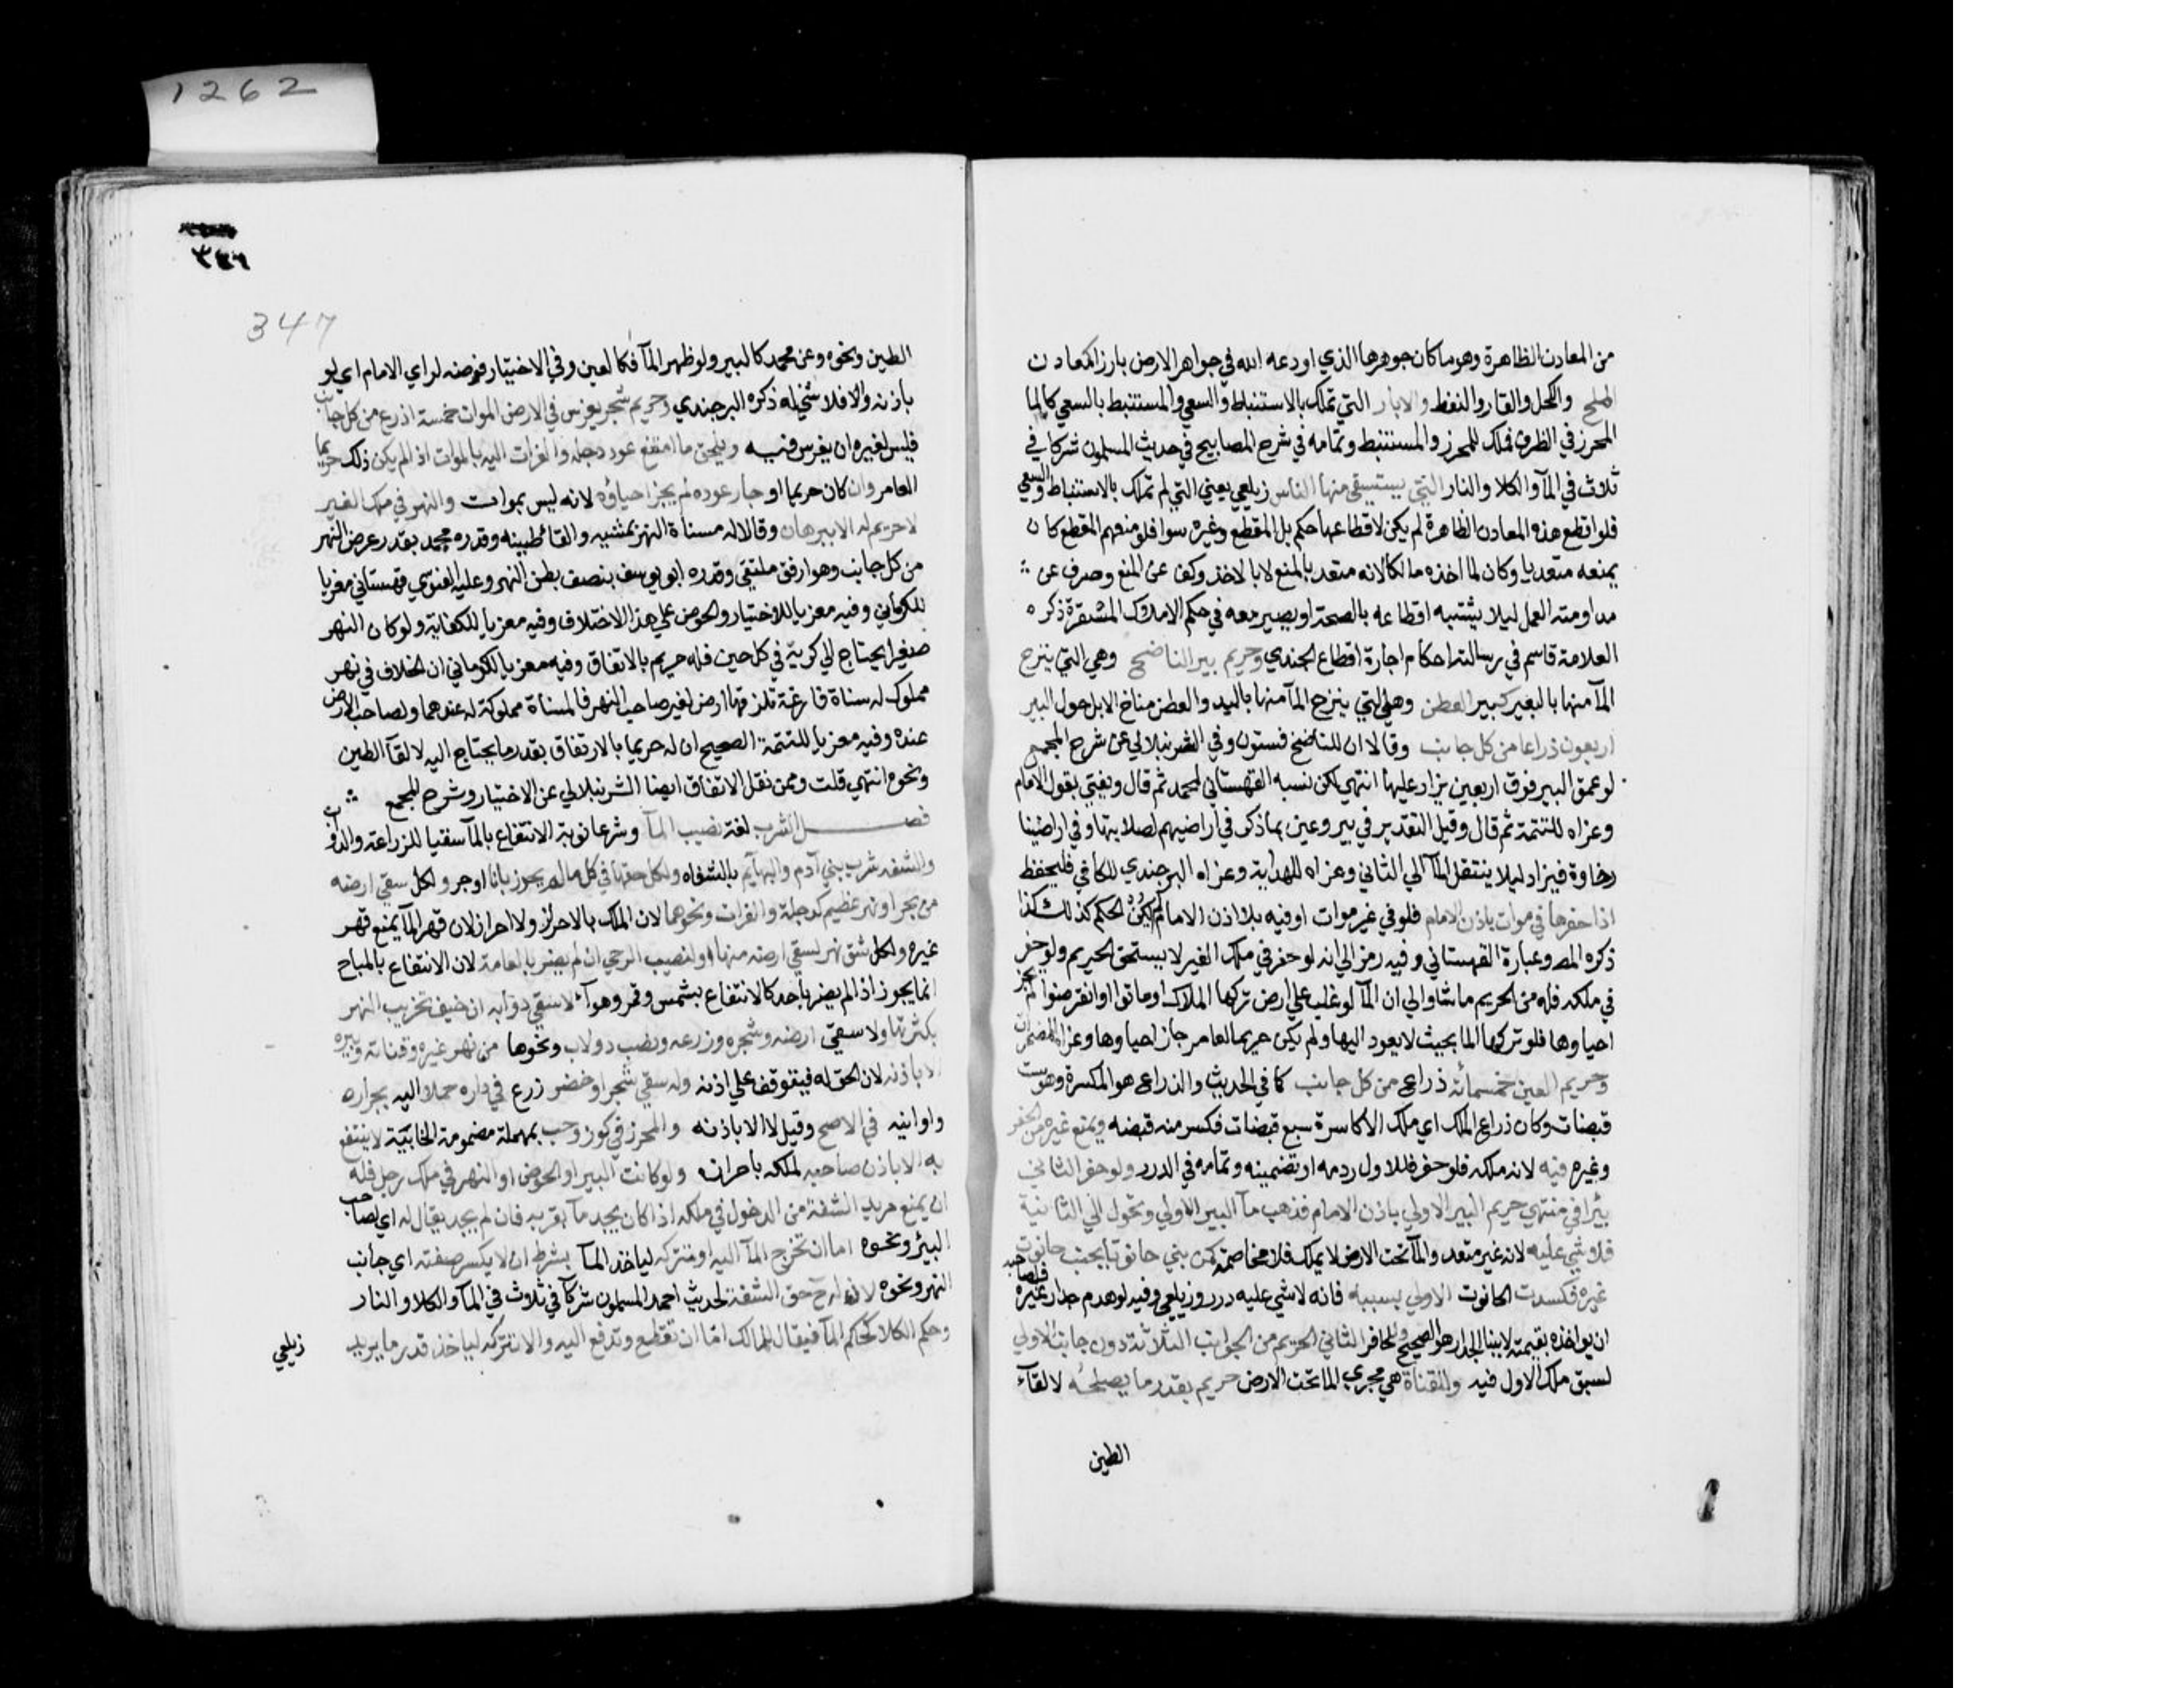 1262
من المعادن الظاهرة وهو ما كان جوهرها الذي اودعه الله في جواهر الارض بارزا كمعادن
الملح والكحل والقار والنفط والابار التي تملك بالاستنباط والسعي والمستنبط بالسعي كالما
المحرز في الظرف فملك للمحرز والمستنبط وتمامه في شرح المصابيح في حديث المسلمون شركا في
ثلاث في المآ والكلا والنار التي يستيقى منها الناس زيلعي يعني التي لم تملك بالاستنباط والسعي
فلو اقطع هذه المعادن الظاهرة لم يكن لاقطاعها حكم بل المقطع وغيره سوا فلو منعهم المقطع كان
بمنعه متعديا وكان لما اخذه مالكا لانه متعد بالمنع لا بالاخذ وكف عن المنع وصرف عن
مداومته العمل ليلا يشتبه اقطاعه بالصحة او يصير معه في حكم الاملاك المستقرة ذكره
العلامة قاسم في رسالته احكام اجارة اقطاع الجندي وحريم بير الناضح وهي التي ينزح
المآ منها بالبعير كبير العطن وهي التي ينزح المآ منها باليد والعطن مناخ الابل حول البير
اربعون ذراعا من كل جانب وقالا ان للناضح فستون وفي الشرنبلالي عن شرح المجمع
لو عمق البير فوق اربعين يزاد عليها انتهي لكن نسبه القهستاني لمحمد ثم قال ويفتي بقول الامام
وعزاه للتتمة ثم قال وقيل التقدير في بير وعين بما ذكر في اراضيهم لصلابتها وفي اراضينا
رخاوة فيزاد ليلا ينتقل المآ الي الثاني وعزاه للهداية وعزاه البرجندي للكافي فليحفظ
اذا حفرها في موات باذن الامام فلو في غير موات او فيه بلا اذن الامام لم يكن الحكم كذلك كذا
ذكره المص وعبارة القهستاني وفيه رمز الي انه لو حفر في ملك الغير لا يستحق الحريم ولو حفر
في ملكه فله من الحريم ما شا والي ان المآ لو غلب علي ارض تركها الملاك او ماتوا او انقرضوا لم يجز
احياوها فلو تركها الما بحيث لا يعود اليها ولم يكن حريما لعامر جاز احياوها وعزاه للمضمرات
وحريم العين خمسمائه ذراع من كل جانب كما في الحديث والذراع هو المكسرة وهو ست
قبضات وكان ذراع الملك اي ملك الاكاسرة سبع قبضات فكسر منه قبضه ويمنع غيره من الحفر
وغيره فيه لانه ملكه فلو حفر فللاول ردمه او تضمينه وتمامه في الدرر ولو حفر الثاني
بئرا في منتهي حريم البير الاولي باذن الامام فذهب مآ البير الاولي وتحول الي الثانية
فلا شي عليه لانه غير متعد والمآ تحت الارض لا يملك فلا مخاصمه كمن بني حانوتا بجنب حانوت
غيره فكسدت الحانوت الاولي بسببه فانه لا شي عليه درر وزيلعي وفيه لو هدم جدار غيره فلصاحبه
ان يواخذه بقيمته لا ببنا الجدار هو الصحيح وللحافر الثاني الحريم من الجوانب الثلاثة دون جانب الاولي
لسبق ملك الاول فيه وللقناة هي مجري الما تحت الارض حريم بقدر ما يصلحه لالقآء
الطين
347
الطين ونحوه وعن محمد كالبير ولو ظهر المآ فكالعين وفي الاختيار فوضه لراي الامام اي لو
باذنه والا فلا شي له ذكره البرجندي وحريم شجر يغرس في الارض الموات خمسة اذرع من كل جانب
فليس لغيره ان يغرس فيه ويلحق ما امتنع عود دجله والفرات اليه بالموات اذ لم يكن ذلك حريما
لعامر وان كان حريما او جاز عوده لم يجز احياؤه لانه ليس بموات والنهر في ملك الغير
لا حريم له الا ببرهان وقالا له مسناة النهر لمشيه والقا طينه وقدره محمد بقدر عرض النهر
من كل جانب وهو ارفق ملتقي وقدره ابو يوسف بنصف بطن النهر وعليه الفتوي قهستاني معزيا
للكرماني وفيه معزيا للاختيار والحوض علي هذا الاختلاف وفيه معزيا للكفاية ولو كان النهر
صغيرا يحتاج الي كريه في كل حين فله حريم بالاتفاق وفيه معزيا للكرماني ان الخلاف في نهر
مملوك له مسناة فارغة تلزقها ارض لغير صاحب النهر فالمسناة مملوكة له عندهما ولصاحب الارض
عنده وفيه معزيا للتتمة الصحيح ان له حريما بالارتفاق بقدر ما يحتاج اليه لالقآ الطين
ونحوه انتهي قلت وممن نقل الاتفاق ايضا الشرنبلالي عن الاختيار وشرح المجمع
فصل الشرب لغة نصيب المآ وشرعا نوبة الانتفاع بالمآ سقيا للزراعة والدواب
والشفه شرب بني آدم والبهايم بالشفاه ولكل حقها في كل ما لم يحرز بانا او جر ولكل سقي ارضه
من بحر او نهر عظيم كدجلة والفرات ونحوهما لان الملك بالاحراز ولا احراز لان قهر المآ يمنع قهر
غيره ولكل شق نهر لسقي ارضه منها او لنصيب الرحي ان لم يضر بالعامة لان الانتفاع بالمباح
انما يجوز اذا لم يضر باحد كالانتفاع بشمس وقمر وهوآء لا سقي دوابه ان خيف تخريب النهر
بكثرتها ولا سقي ارضه وشجره وزرعه ونصب دولاب ونحوها من نهر غيره وقناته وبيره
الا باذنه لان الحق له فيتوقف علي اذنه وله سقي شجر او خضر زرع في داره حملا اليه بجراره
واوانيه في الاصح وقيل لا الا باذنه والمحرز في كوز وحب بمهملة مضمومة الخابية لا ينتفع
به الا باذن صاحبه لملكه باحرازه ولو كانت البير او الحوض او النهر في ملك رجل فله
ان يمنع مريد الشفة من الدخول في ملكه اذا كان يجد مآ بقربه فان لم يجد يقال له اي لصاحب
البئر ونحوه اما ان تخرج المآ اليه او تتركه لياخذ المآ بشرط ان لا يكسر ضفته اي جانب
النهر ونحوه لان له ح حق الشفة لحديث احمد المسلمون شركآ في ثلاث في المآ والكلا والنار
وحكم الكلا كحكم المآ فيقال للمالك اما ان تقطع وتدفع اليه والا تتركه لياخذ قدر ما يريد
زيلعي